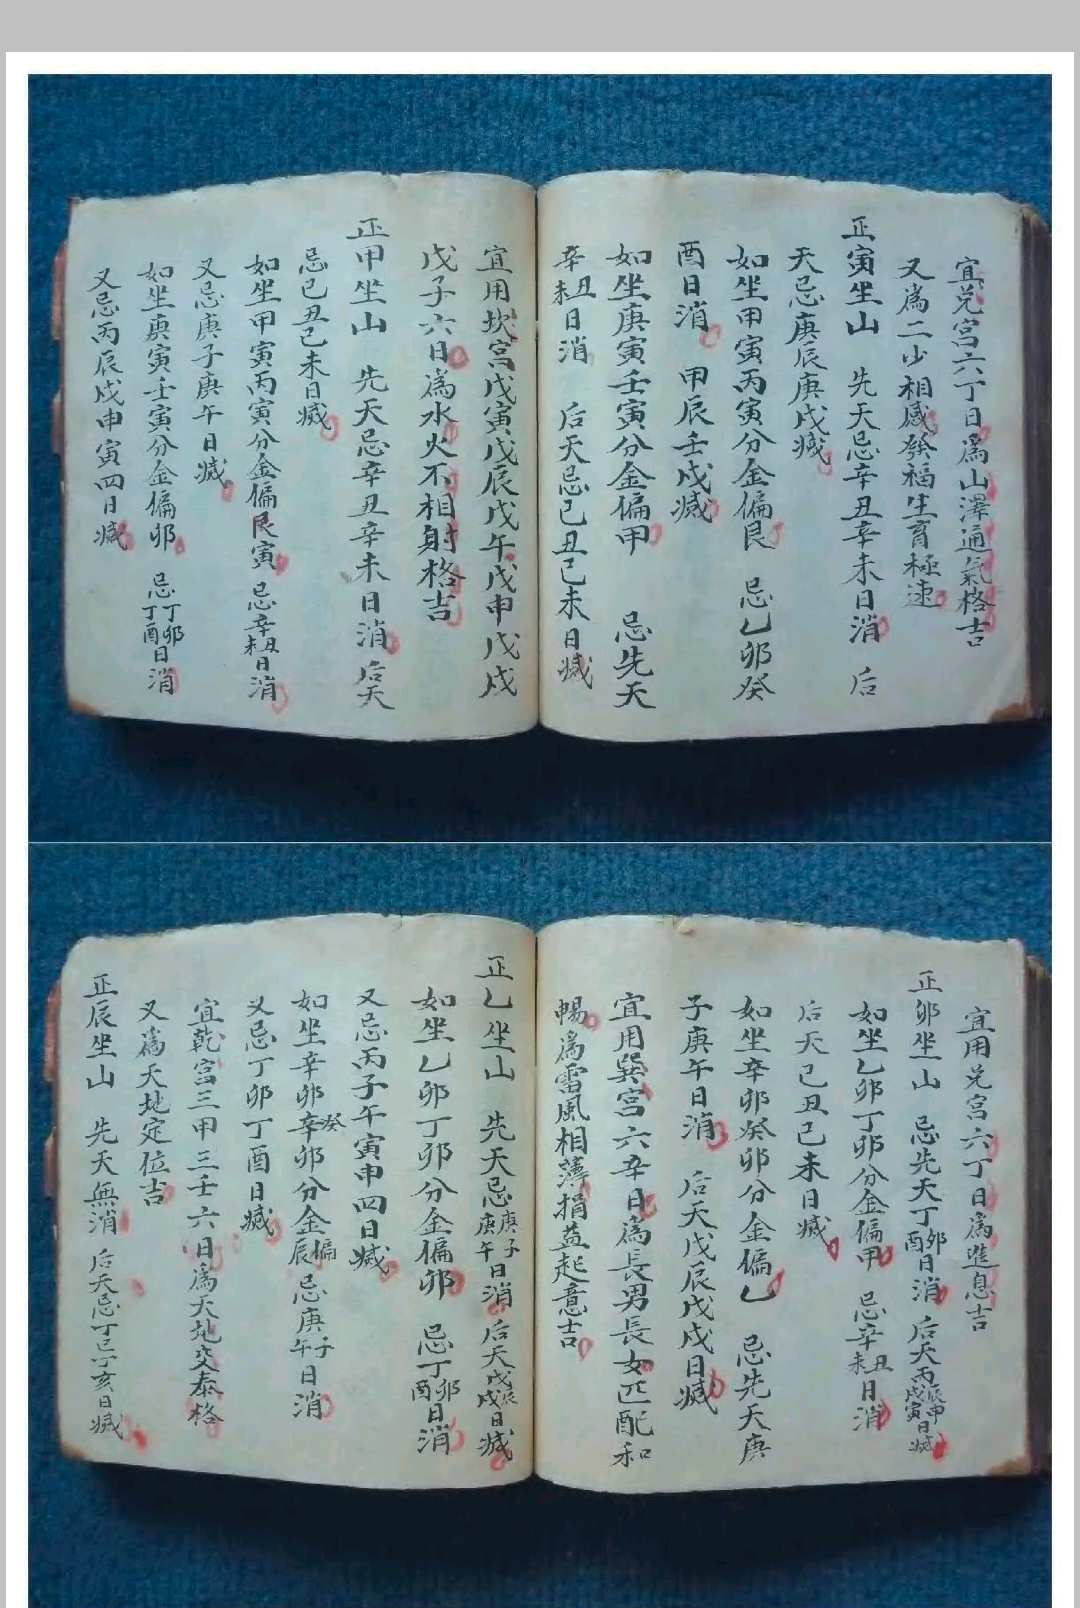 宜兑宮六丁日為山澤通氣格吉
又為二少相感發福生育極速
正寅坐山 先天忌辛丑辛未日消 后
天忌庚辰庚戌滅
如坐甲寅丙寅分金偏艮 忌乙卯癸
酉日消 甲辰壬戌滅
如坐庚寅壬寅分金偏甲 忌先天
辛丑未日消 后天忌己丑己未日滅
宜用坎宮戊寅戊辰戊午戊申戊戌
戊子六日為水火不相射格吉
正甲坐山 先天忌辛丑辛未日消 后天
忌己丑己未日滅
如坐甲寅丙寅分金偏艮寅 忌辛丑未日消
又忌庚子庚午日滅
如坐庚寅壬寅分金偏卯 忌丁卯丁酉日消
又忌丙辰戌申寅四日滅
宜用兑宮六丁日為進息吉
正卯坐山 忌先天丁卯酉日消 后天丙辰申戌寅日滅
如坐乙卯丁卯分金偏甲 忌辛丑未日消
后天己丑己未日滅
如坐辛卯癸卯分金偏乙 忌先天庚
子庚午日消 后天戊辰戊戌日滅
宜用巽宮六辛日為長男長女匹配和
暢為雷風相薄損益起意吉
正乙坐山 先天忌庚子庚午日消 后天戊辰戊戌日滅
如坐乙卯丁卯分金偏卯 忌丁卯酉日消
又忌丙子午寅申四日滅
如坐辛卯辛癸卯分金偏辰 忌庚子午日消
又忌丁卯丁酉日滅
宜乾宮三甲三壬六日為天地交泰格
又為天地定位吉
正辰坐山 先天無消 后天忌丁巳丁亥日滅